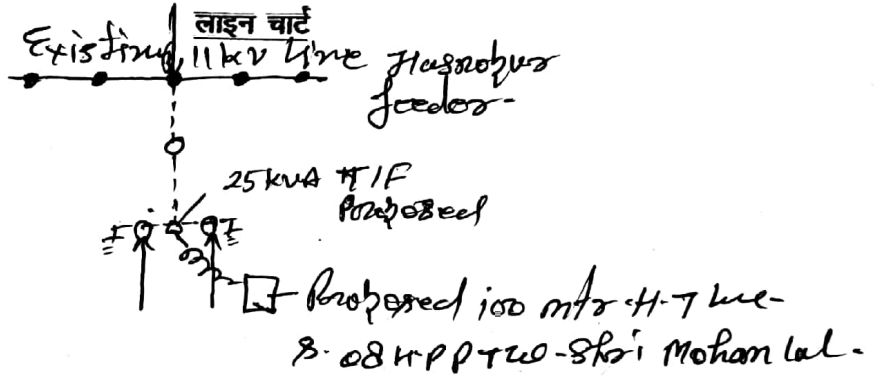 लाइन चार्ट
Existing 11 kv line Hasanpur
feeder-
25 KVA T/F
Proposed
Proposed 100 mtr H.T line
08 H.P P TW - Shri Mohan Lal.